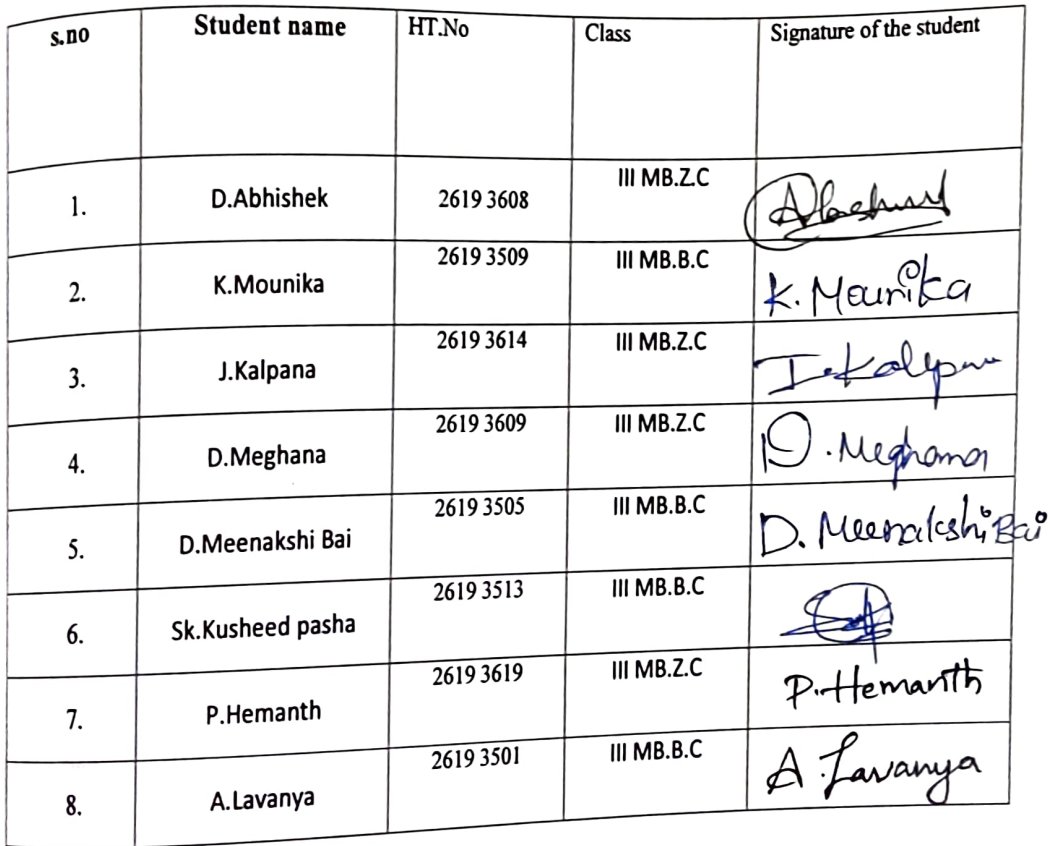 s.no Student name HT.No Class Signature of the student
1. D.Abhishek 2619 3608 III MB.Z.C
2. K.Mounika 2619 3509 III MB.B.C K. Mounika
3. J.Kalpana 2619 3614 III MB.Z.C J. Kalpana
4. D.Meghana 2619 3609 III MB.Z.C D. Meghana
5. D.Meenakshi Bai 2619 3505 III MB.B.C D. Meenakshi Bai
6. Sk.Kusheed pasha 2619 3513 III MB.B.C
7. P.Hemanth 2619 3619 III MB.Z.C P. Hemanth
8. A.Lavanya 2619 3501 III MB.B.C A. Lavanya